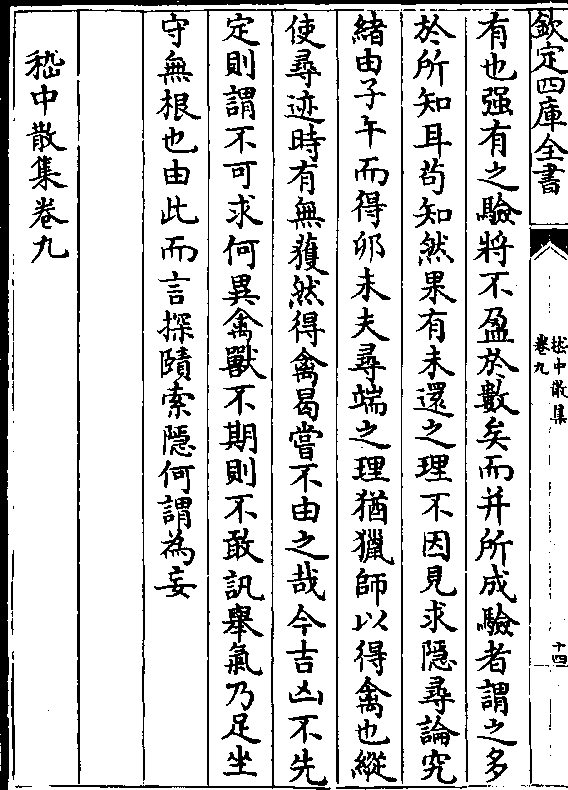 欽定四庫全書
嵇中散集
卷九
十四
有也强有之驗將不盈於數矣而并所成驗者謂之多
於所知耳茍知然果有未還之理不因見求隱尋論究
緒由子午而得卯未夫尋端之理猶獵師以得禽也縱
使尋迹時有無獲然得禽曷嘗不由之哉今吉凶不先
定則謂不可求何異禽獸不期則不敢訊舉氣乃足坐
守無根也由此而言探賾索隱何謂為妄
嵇中散集卷九